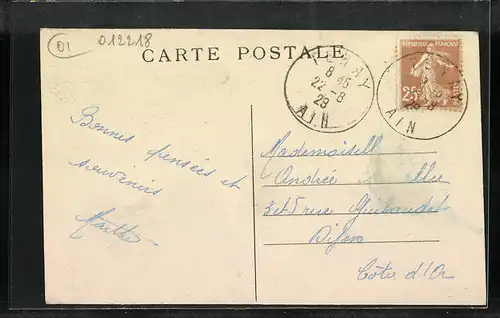 01
012218
CARTE POSTALE
FERNAY
8 45
22-8
28
AIN
REPUBLIQUE FRANÇAISE
25c
AIN
Bonnes pensées et
souvenirs
Marthe
Mademoiselle
Andrée
3 et 5 rue Guibaudet
Dijon
Côte d'Or